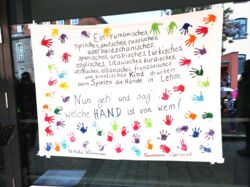 Ein rumänisches,
syrisches, deutsches, russisches,
aserbaidschanisches,
spanisches, arabisches, türkisches,
englisches, litauisches, kurdisches,
serbisches, albanisches, französisches
und kroatisches Kind drücken
beim Spielen die Hände in Lehm.
Nun geh' und sag'
welche HAND ist von wem!